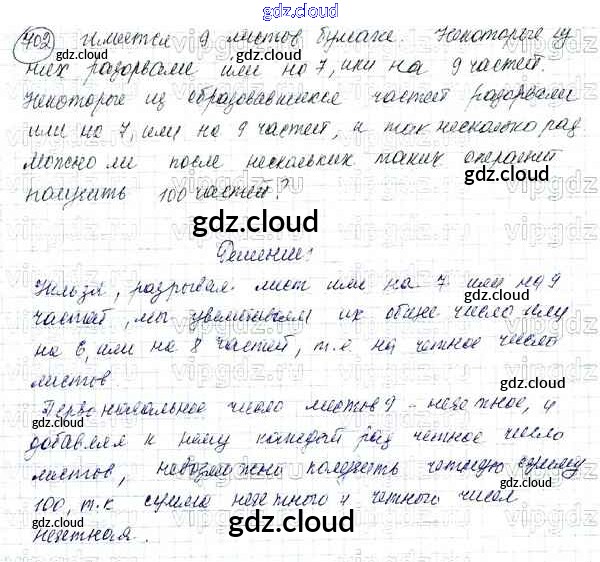 gdz.cloud
702 Имеется 9 листов бумаги. Некоторые из
них разорвали или на 7, или на 9 частей.
Некоторые из образовавшихся частей разорвали
или на 7, или на 9 частей, и так несколько раз.
Можно ли после нескольких таких операций
получить 100 частей?
gdz.cloud
Решение:
Нельзя, разрывая лист или на 7 или на 9
частей, мы увеличиваем их общее число или
на 6, или на 8 частей, т.е. на четное число
листов.
Первоначальное число листов 9 - нечетное, и
добавляя к нему каждый раз четное число
листов, невозможно получить четную сумму
100, т.к сумма нечетного и четного чисел
нечетная.
gdz.cloud